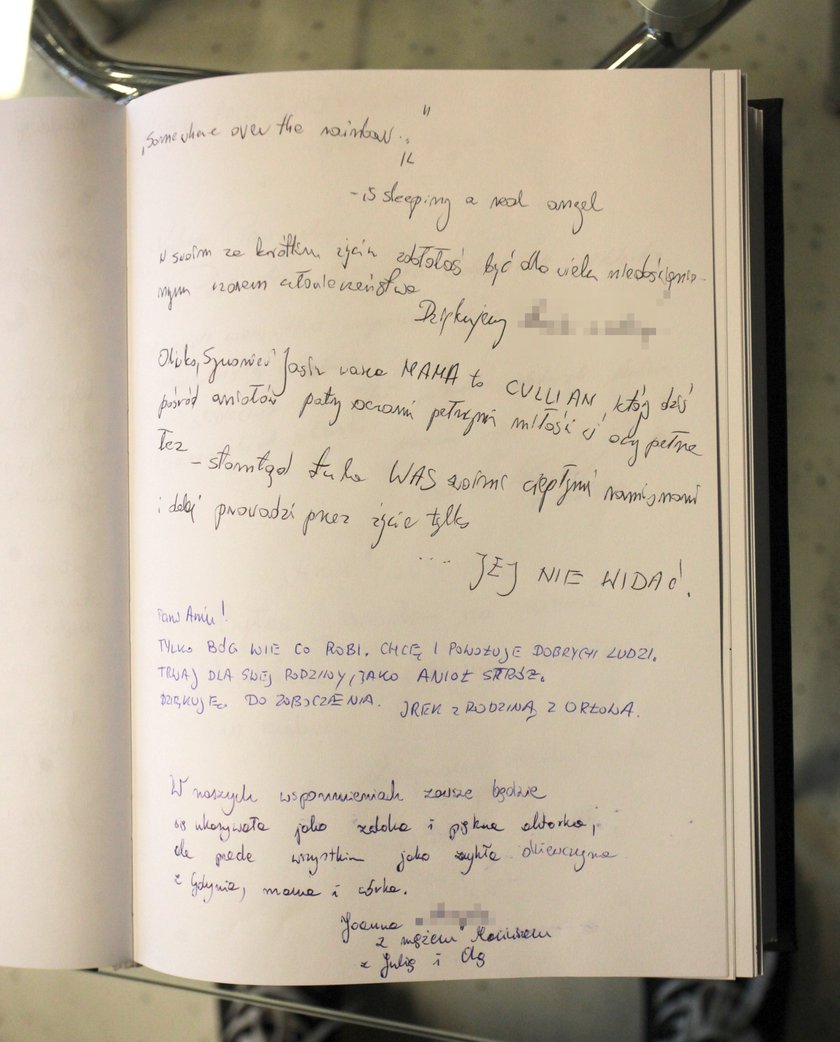 „Somewhere over the rainbow..."
-is sleeping a real angel
W swoim za krótkim życiu zdołałaś być dla wielu niedoścignio-
nym wzorem człowieczeństwa
Dziękujemy
Oliwko, Szymonie i Jasiu wasza MAMA to CULLIAN, który dziś
pośród aniołów patrzy oczami pełnymi miłości i oczy pełne
łez - stamtąd tula WAS swoimi ciepłymi ramionami
i dalej prowadzi przez życie tylko
.... JEJ NIE WIDAĆ.
Pani Aniu!
TYLKO BÓG WIE CO ROBI. CHCĘ I POWOŁUJE DOBRYCH LUDZI.
TRWAJ DLA SWEJ RODZINY, JAKO ANIOŁ STRÓŻ.
DZIĘKUJĘ. DO ZOBACZENIA. IREK Z RODZINĄ Z ORŁOWA.
W naszych wspomnieniach zawsze będzie
się ukazywała jako zdolna i piękna aktorka,
ale przede wszystkim jako zwykła dziewczyna
z Gdyni, mama i córka.
Joanna
z mężem
z Julią i Olą